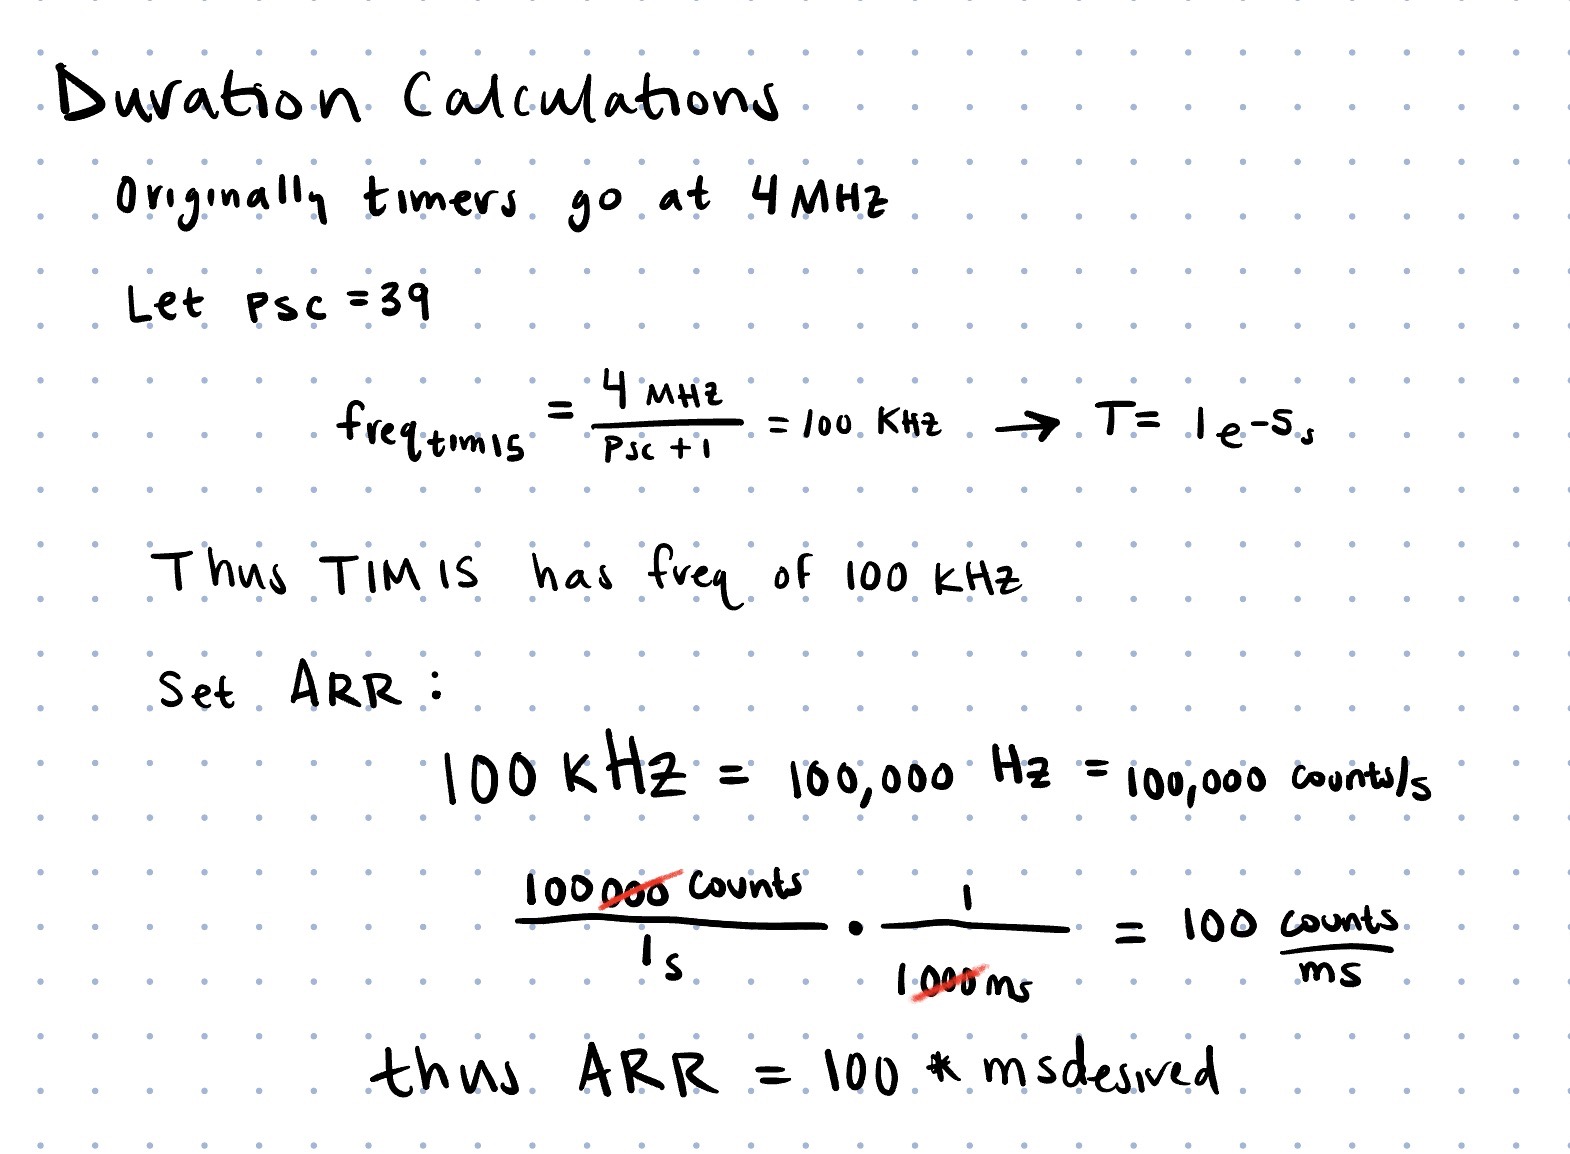 Duration Calculations
Originally timers go at 4 MHz
Let psc = 39
freq_tim15 = 4 MHz / (Psc + 1) = 100 KHz → T = 1e-5 s
Thus TIM 15 has freq of 100 KHz
Set ARR :
100 KHz = 100,000 Hz = 100,000 counts/s
100000 counts / 1s · 1 / 1000 ms = 100 counts / ms
thus ARR = 100 * msdesired